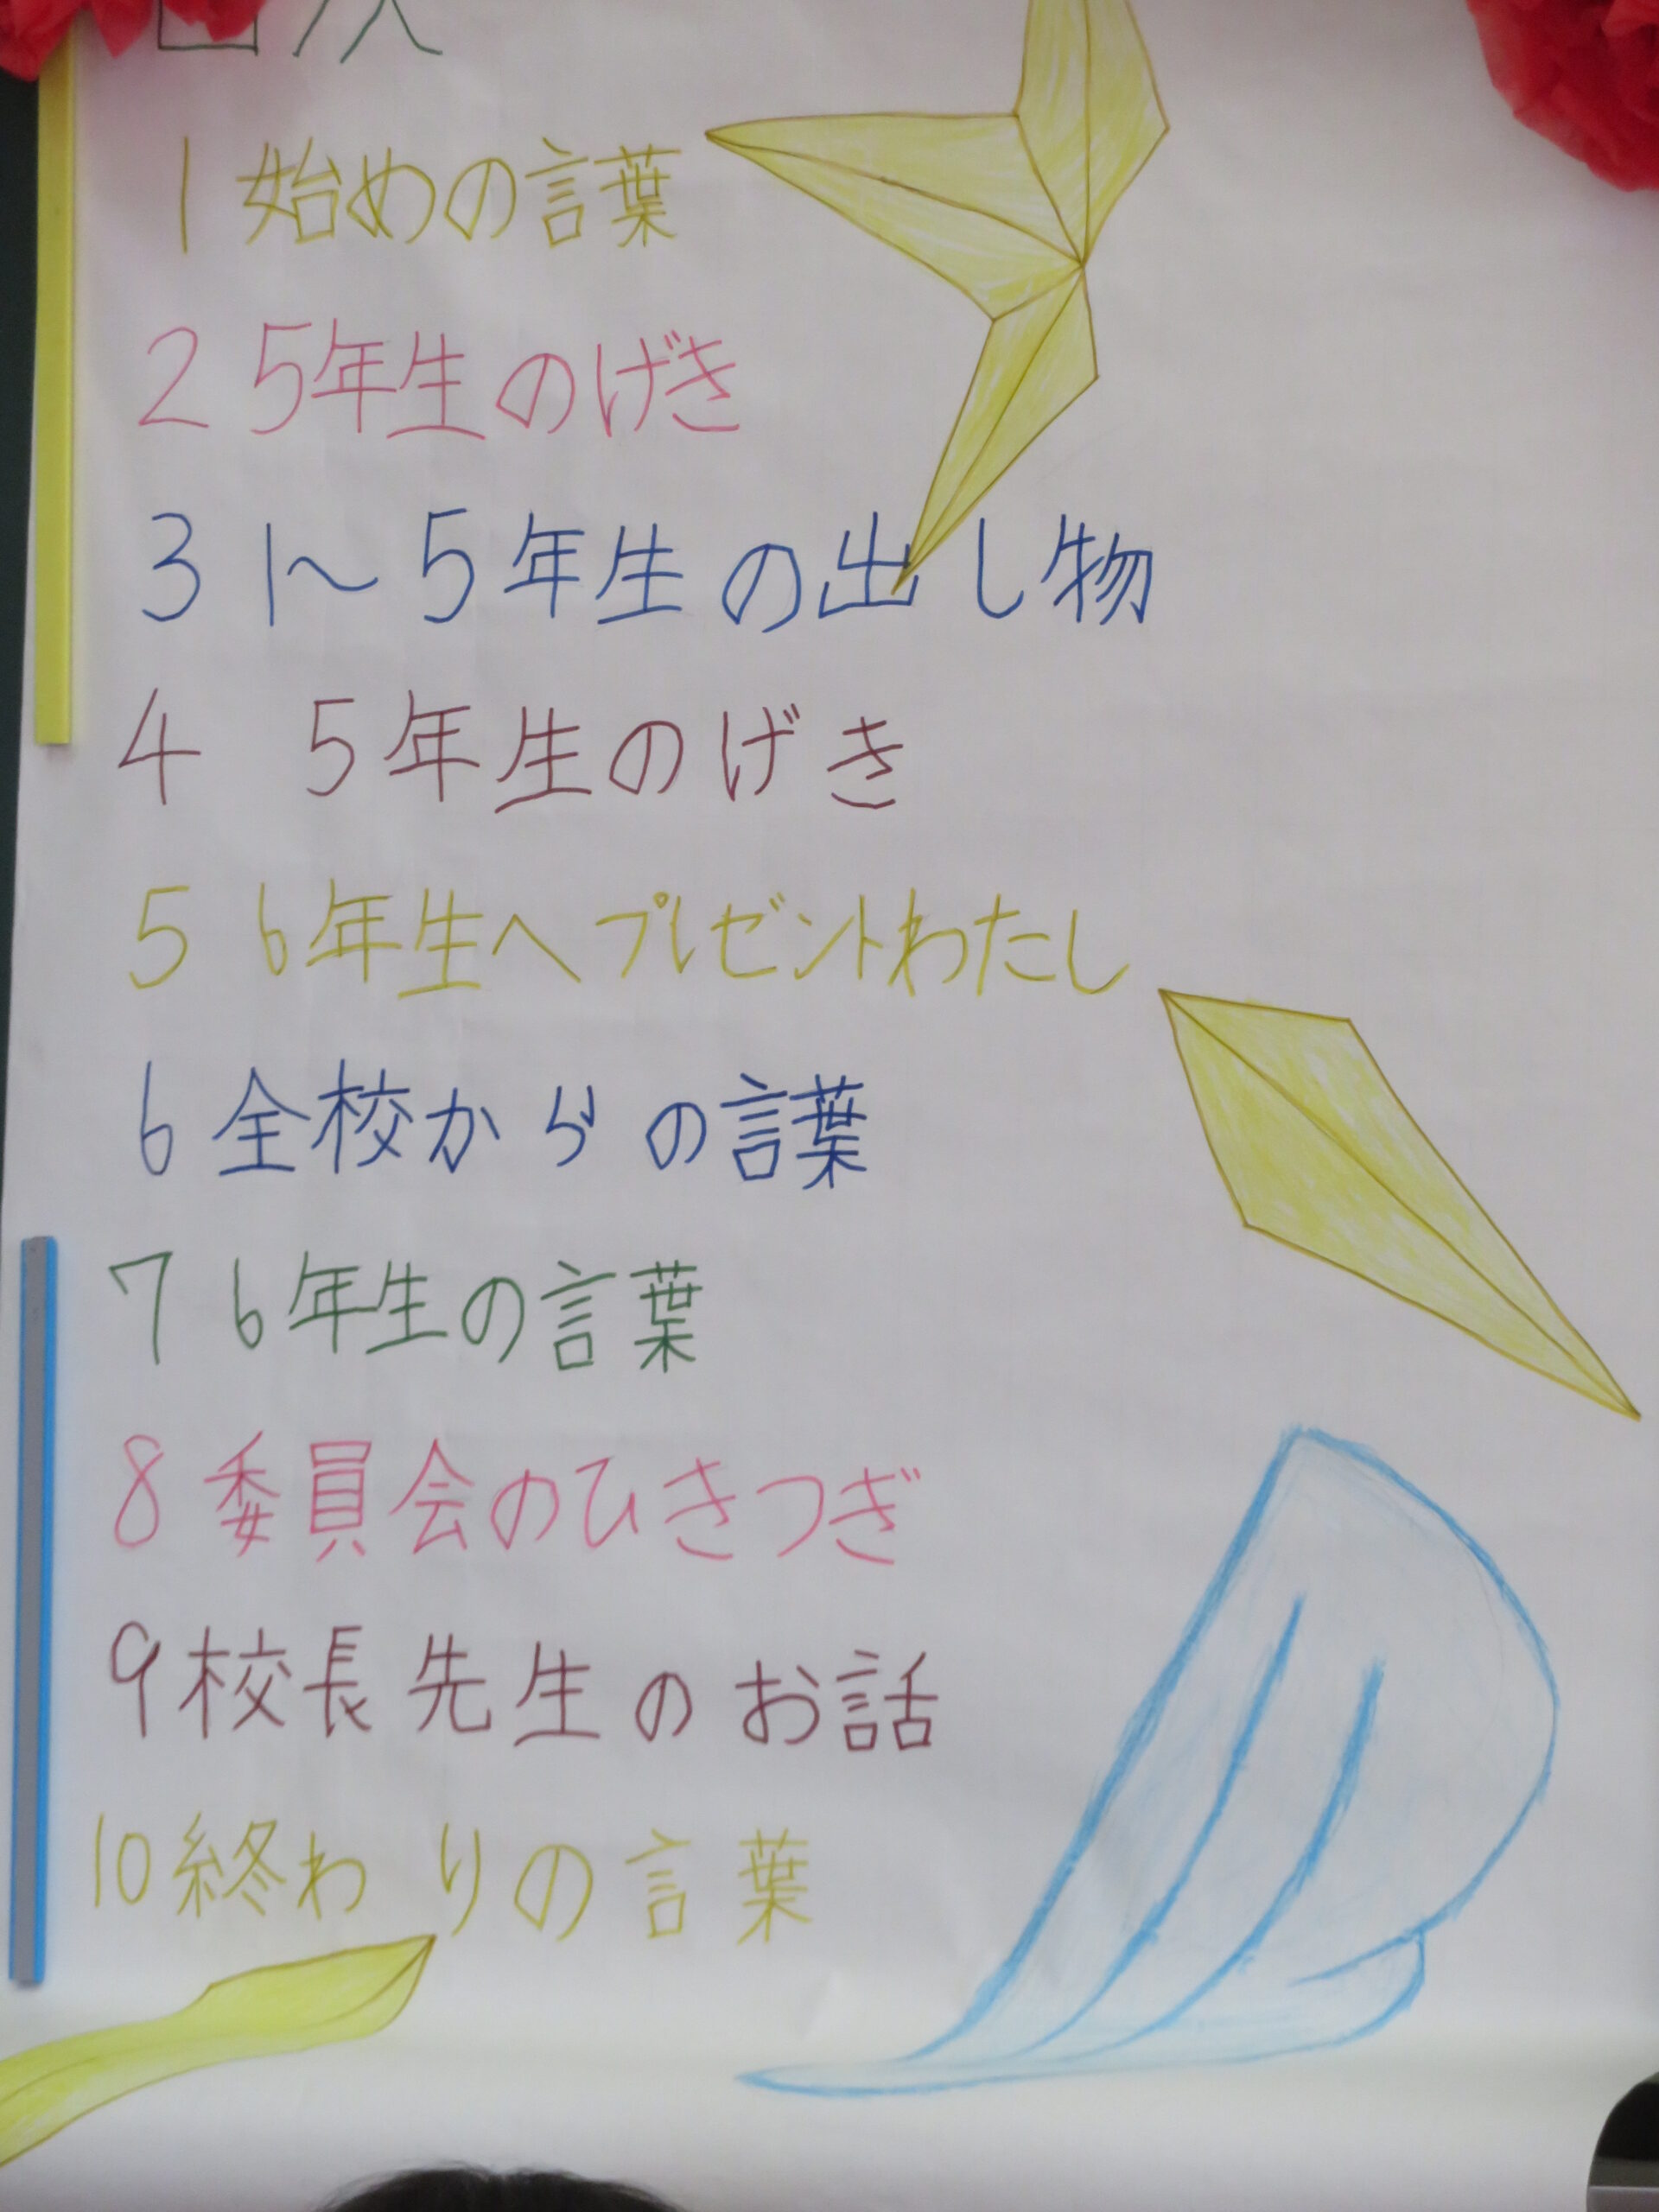 目次
1 始めの言葉
2 5年生のげき
3 1〜5年生の出し物
4 5年生のげき
5 6年生へプレゼントわたし
6 全校からの言葉
7 6年生の言葉
8 委員会のひきつぎ
9 校長先生のお話
10 終わりの言葉